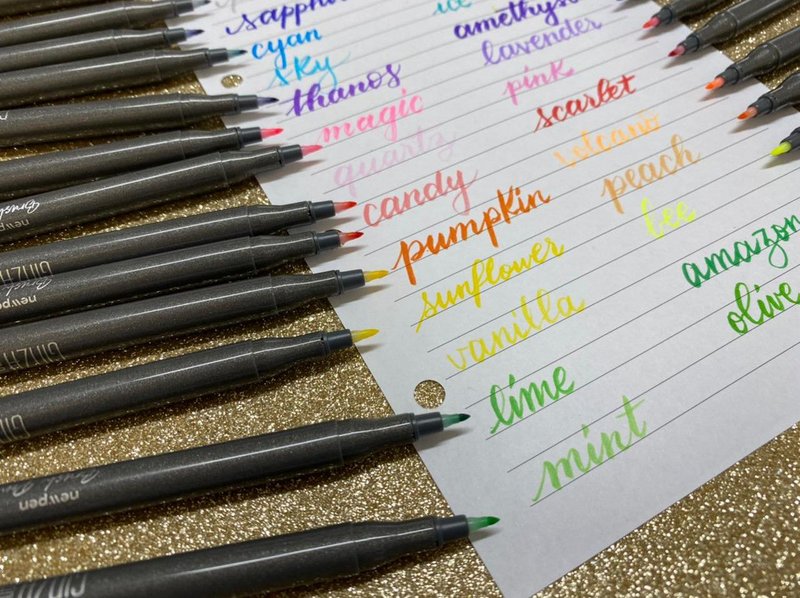 sapph
ice
cyan
amethys
sky
lavender
thanos
pink
magic
scarlet
quartz
volcano
candy
peach
pumpkin
bee
sunflower
amazon
vanilla
olive
lime
mint
newpen
Brush
GINZA
newpen
GINZA
newpen
Brush
newpen
GINZA